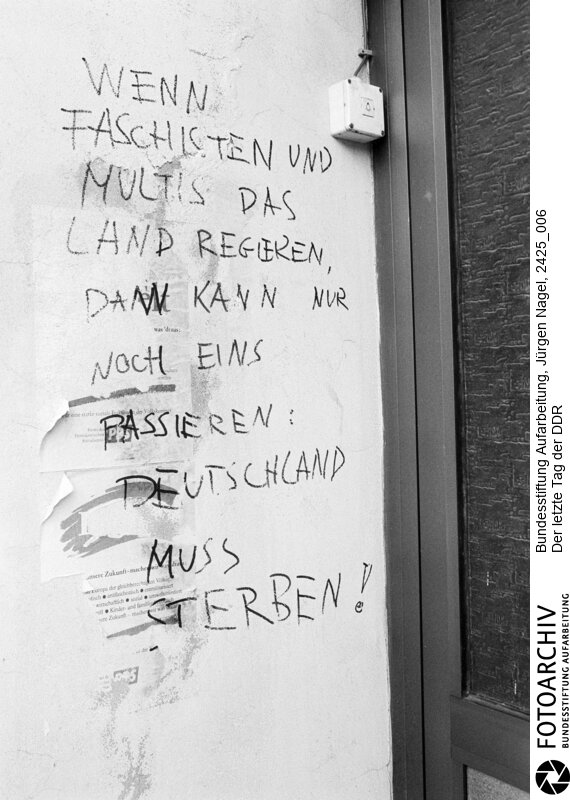 WENN
FASCHISTEN UND
MULTIS DAS
LAND REGIEREN,
DANN KANN NUR
NOCH EINS
PASSIEREN:
DEUTSCHLAND
MUSS
STERBEN!
was 'dt nas:
PDS
unsere Zukunft – machen
PDS
Bundesstiftung Aufarbeitung, Jürgen Nagel, 2425_006
Der letzte Tag der DDR
FOTOARCHIV
BUNDESSTIFTUNG AUFARBEITUNG